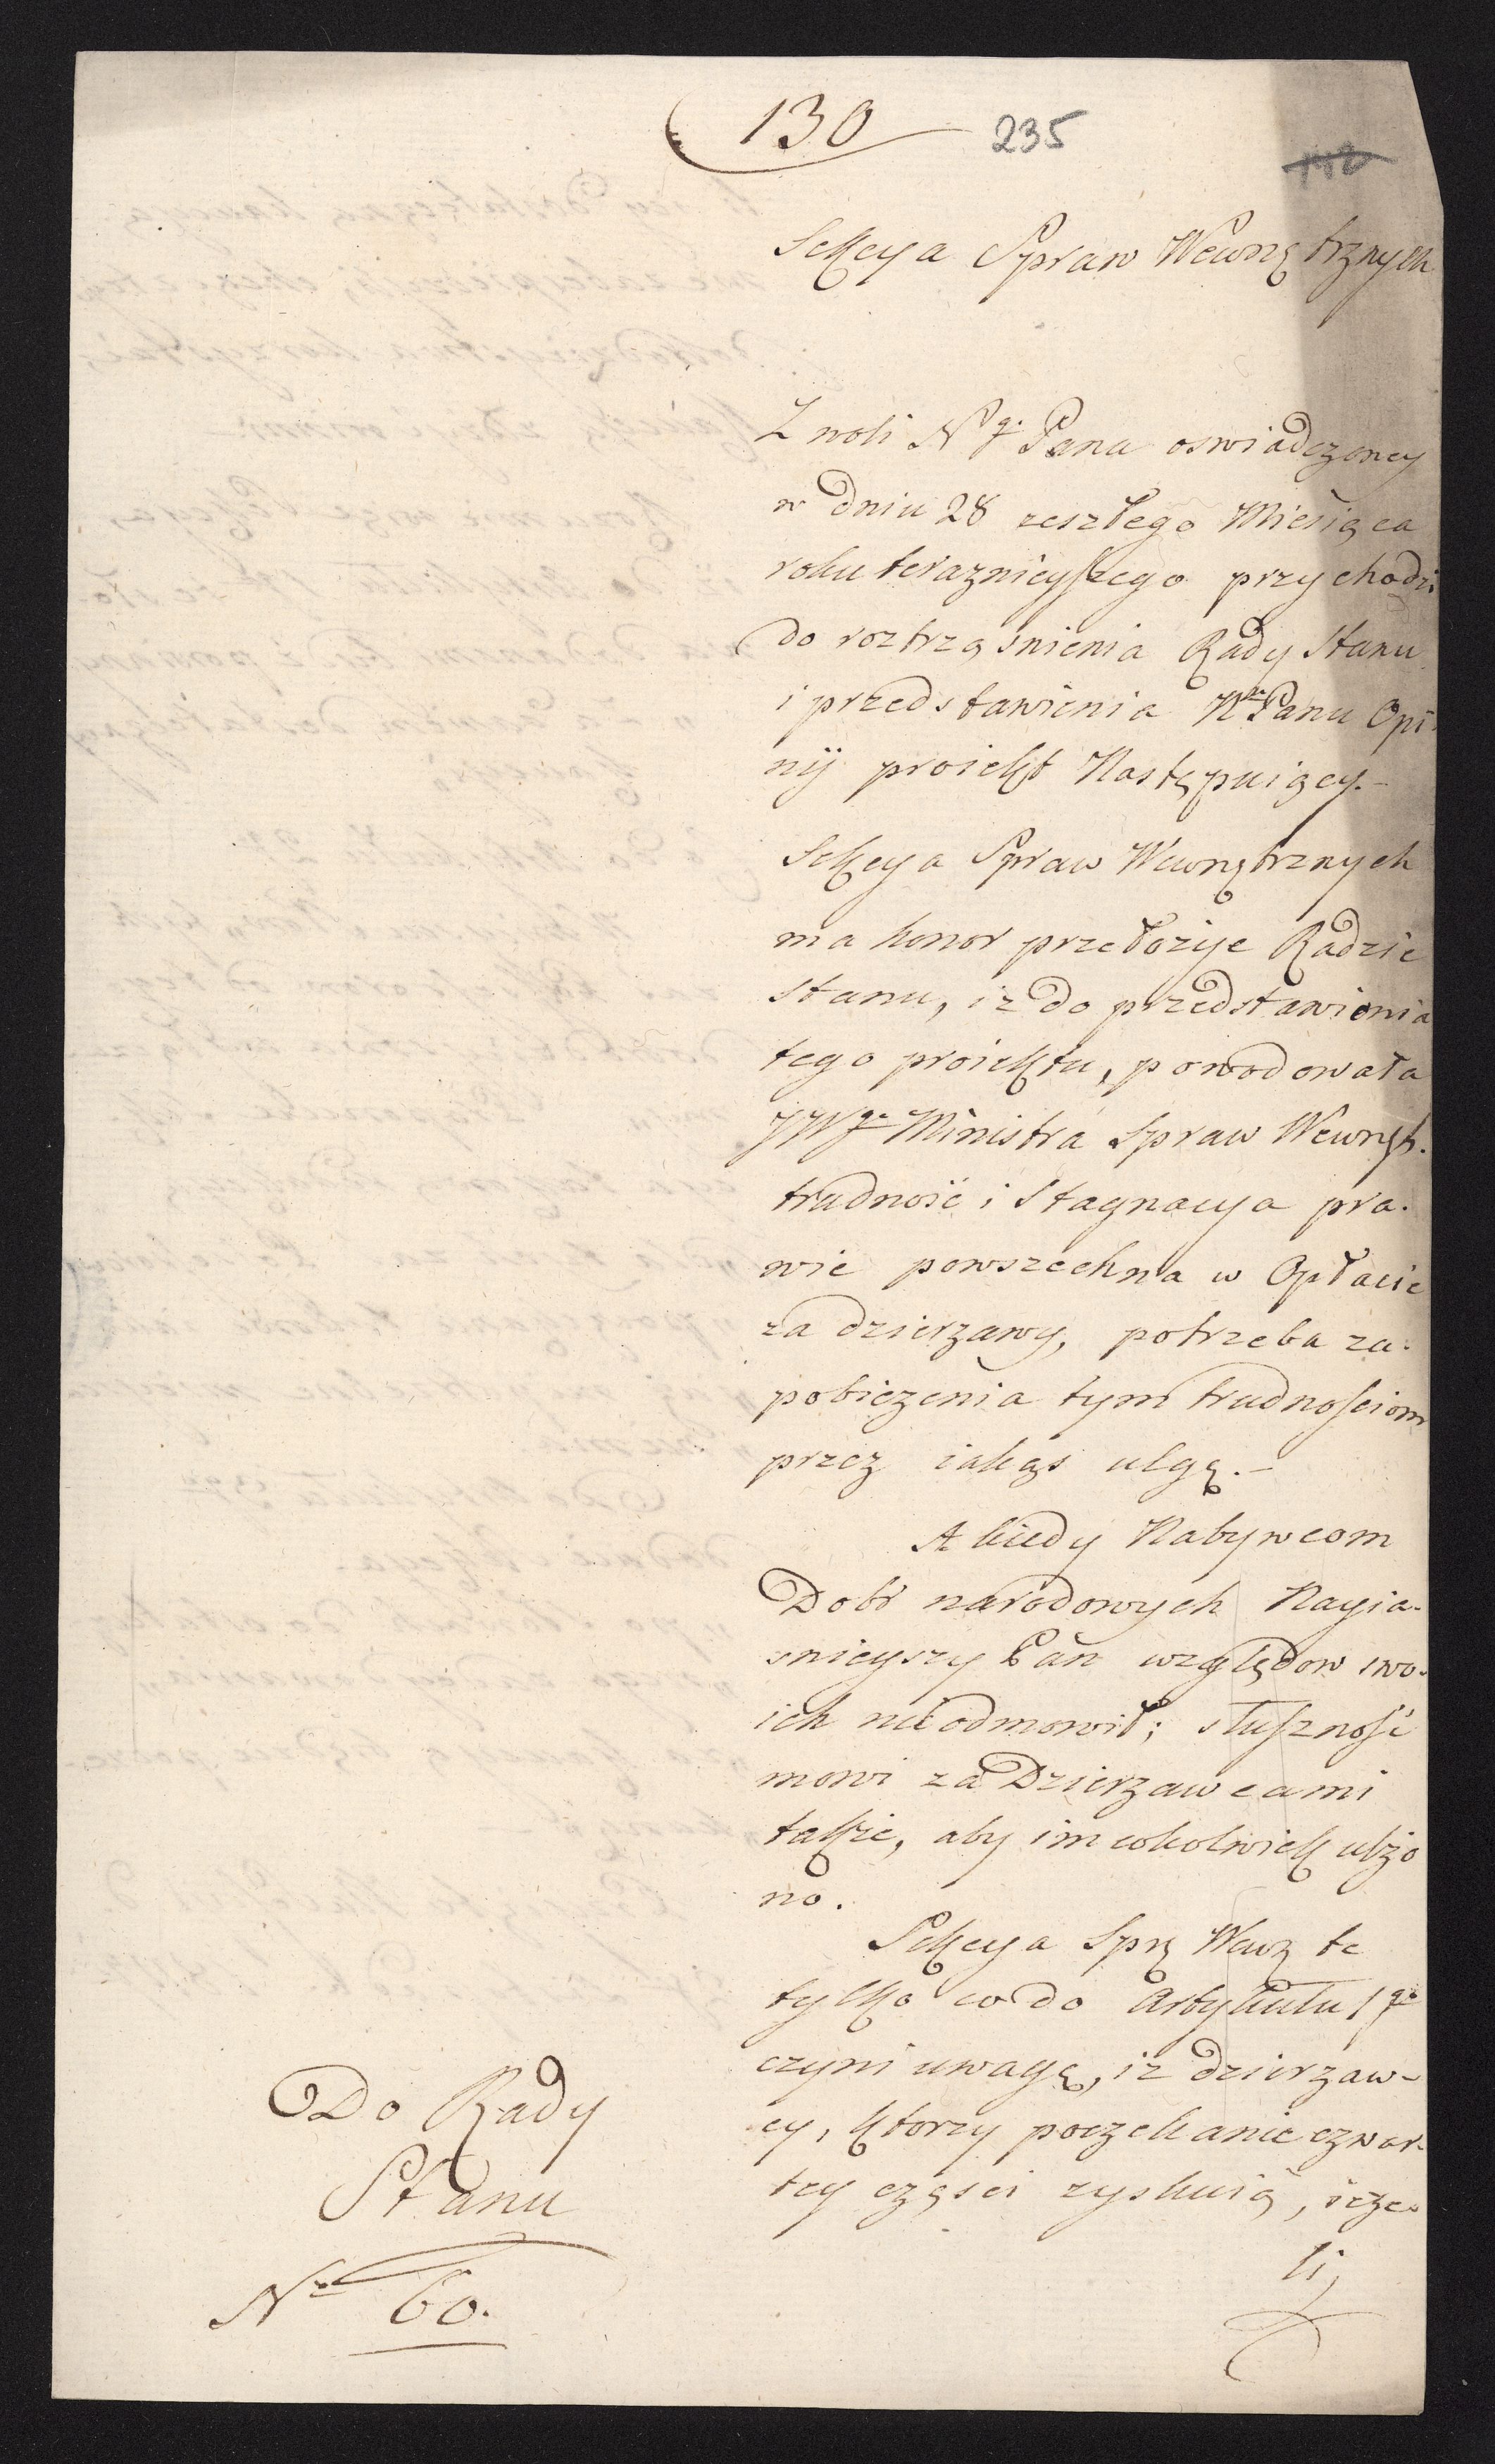 130
235
Sekcya Spraw Wewnętrznych
Z woli Ngo. Pana oswiadczoney
w dniu 28 zeszłego Miesiąca
roku terazniejszego przychodzi
do roztrząsnienia Rady Stanu
i przedstawienia Nmu Panu Opi-
nij proiekt Następuiący.-
Sekcya Spraw Wewnętrznych
ma honor przełożyc Radzie
Stanu, iz do przedstawienia
tego proiektu, powodowała
JWgo Ministra Spraw Wewnęt.
trudność i Stagnacya pra-
wie powszechna w Opłacie
za dzierzawy, potrzeba za-
pobieżenia tym trudnościom
przez iakąs ulgę.-
A kiedy Nabywcom
Dobr narodowych Nayia-
snieyszy Pan względow swo-
ich nie odmowił; słuszność
mowi za Dzierzawcami
także, aby im cokolwiek ulżo
no.
Sekcya Spr Wew te
tylko co do Artykułu 1go
czyni uwagę, iz dzierzaw-
cy, ktorzy poczekanie czwar-
tey części zyskuią, ieże-
li,
Do Rady
Stanu
Nro 60.